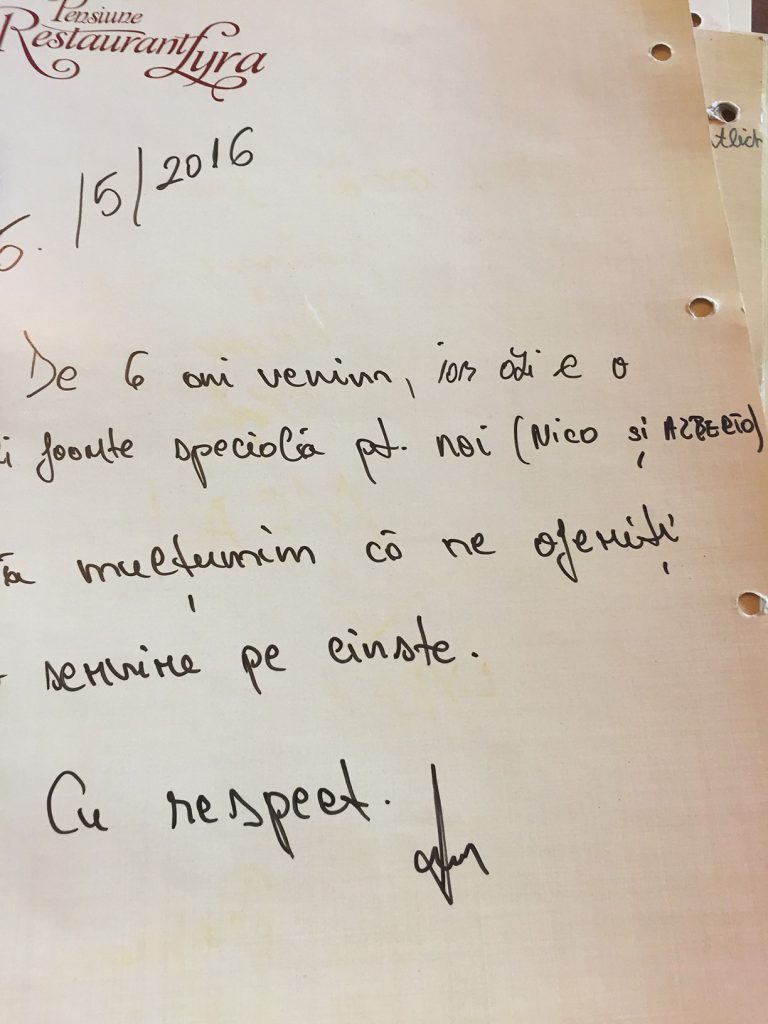 Pensiune
Restaurant Lyra
6. /5/2016
De 6 ani venim, iar azi e o
i foarte specială pt. noi (Nico și ALBERTO)
ă mulțumim că ne oferiți
servire pe cinste.
Cu respect.